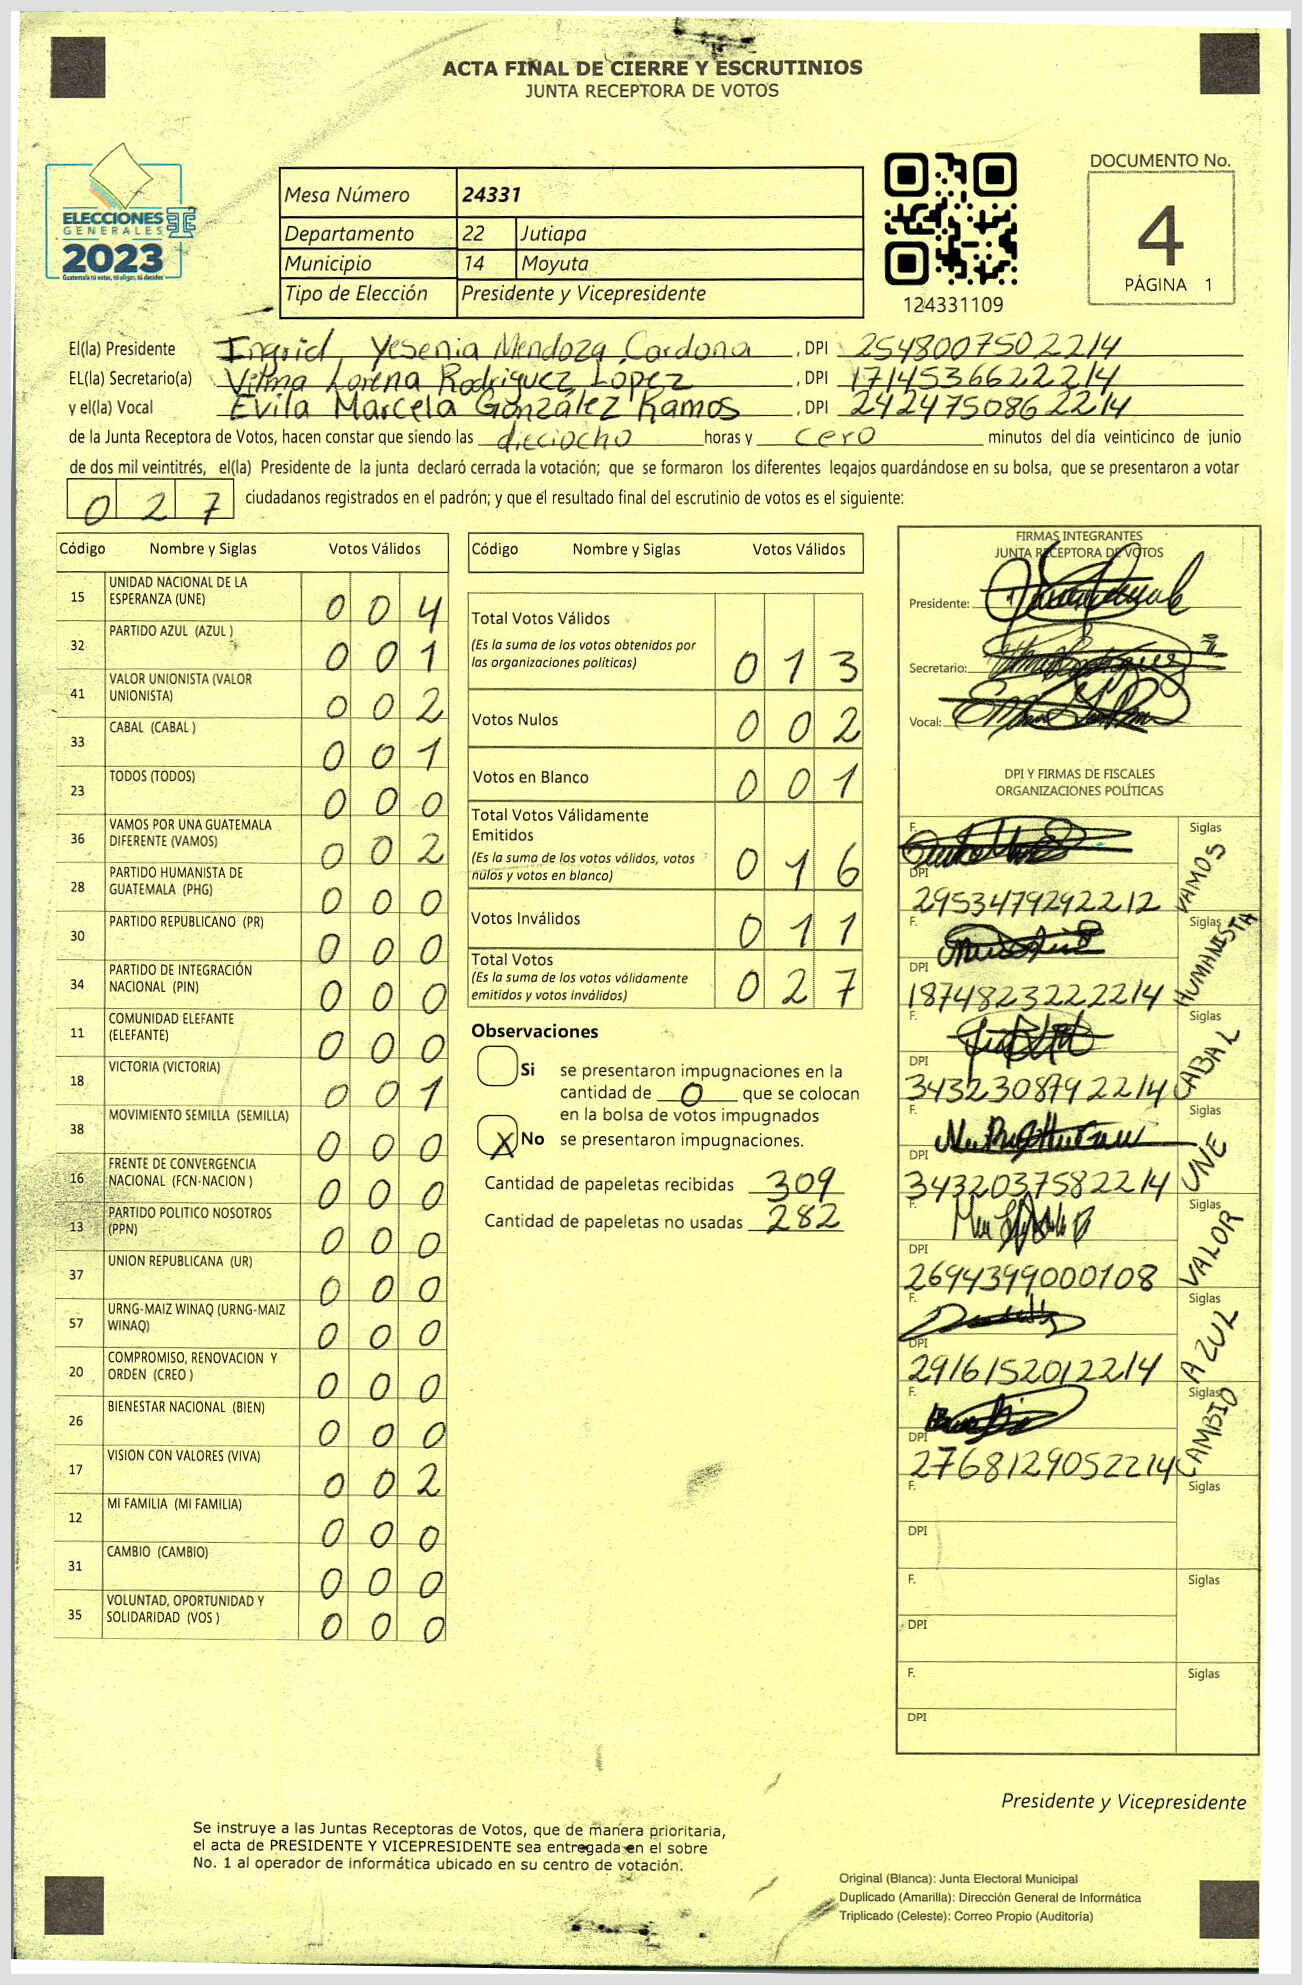 ACTA FINAL DE CIERRE Y ESCRUTINIOS
JUNTA RECEPTORA DE VOTOS
ELECCIONES
GENERALES
2023
Guatemala tú votas, tú eliges, tú decides
Mesa Número 24331
Departamento 22 Jutiapa
Municipio 14 Moyuta
Tipo de Elección Presidente y Vicepresidente
124331109
DOCUMENTO No.
4
PÁGINA 1
El(la) Presidente Ingrid Yesenia Mendoza Cardona , DPI 2548007502214
EL(la) Secretario(a) Vilma Lorena Rodriguez López , DPI 1714536622214
y el(la) Vocal Evila Marcela González Ramos , DPI 2424750862214
de la Junta Receptora de Votos, hacen constar que siendo las dieciocho horas y cero minutos del día veinticinco de junio
de dos mil veintitrés, el(la) Presidente de la junta declaró cerrada la votación; que se formaron los diferentes legajos quardándose en su bolsa, que se presentaron a votar
0 2 7 ciudadanos registrados en el padrón; y que el resultado final del escrutinio de votos es el siguiente:
Código Nombre y Siglas Votos Válidos
15 UNIDAD NACIONAL DE LA ESPERANZA (UNE) 0 0 4
32 PARTIDO AZUL (AZUL ) 0 0 1
41 VALOR UNIONISTA (VALOR UNIONISTA) 0 0 2
33 CABAL (CABAL ) 0 0 1
23 TODOS (TODOS) 0 0 0
36 VAMOS POR UNA GUATEMALA DIFERENTE (VAMOS) 0 0 2
28 PARTIDO HUMANISTA DE GUATEMALA (PHG) 0 0 0
30 PARTIDO REPUBLICANO (PR) 0 0 0
34 PARTIDO DE INTEGRACIÓN NACIONAL (PIN) 0 0 0
11 COMUNIDAD ELEFANTE (ELEFANTE) 0 0 0
18 VICTORIA (VICTORIA) 0 0 1
38 MOVIMIENTO SEMILLA (SEMILLA) 0 0 0
16 FRENTE DE CONVERGENCIA NACIONAL (FCN-NACION ) 0 0 0
13 PARTIDO POLITICO NOSOTROS (PPN) 0 0 0
37 UNION REPUBLICANA (UR) 0 0 0
57 URNG-MAIZ WINAQ (URNG-MAIZ WINAQ) 0 0 0
20 COMPROMISO, RENOVACION Y ORDEN (CREO ) 0 0 0
26 BIENESTAR NACIONAL (BIEN) 0 0 0
17 VISION CON VALORES (VIVA) 0 0 2
12 MI FAMILIA (MI FAMILIA) 0 0 0
31 CAMBIO (CAMBIO) 0 0 0
35 VOLUNTAD, OPORTUNIDAD Y SOLIDARIDAD (VOS ) 0 0 0
Código Nombre y Siglas Votos Válidos
Total Votos Válidos
(Es la suma de los votos obtenidos por
las organizaciones políticas) 0 1 3
Votos Nulos 0 0 2
Votos en Blanco 0 0 1
Total Votos Válidamente
Emitidos
(Es la suma de los votos válidos, votos
nulos y votos en blanco) 0 1 6
Votos Inválidos 0 1 1
Total Votos
(Es la suma de los votos válidamente
emitidos y votos inválidos) 0 2 7
Observaciones
Si se presentaron impugnaciones en la
cantidad de 0 que se colocan
en la bolsa de votos impugnados
X No se presentaron impugnaciones.
Cantidad de papeletas recibidas 309
Cantidad de papeletas no usadas 282
FIRMAS INTEGRANTES
JUNTA RECEPTORA DE VOTOS
Presidente:
Secretario:
Vocal:
DPI Y FIRMAS DE FISCALES
ORGANIZACIONES POLÍTICAS
F. Siglas VAMOS
DPI 2953479292212
F. Siglas HUMANISTA
DPI 1874823222214
F. Siglas CABAL
DPI 3432308792214
F. Siglas UNE
DPI 3432037582214
F. Siglas VALOR
DPI 2694399000108
F. Siglas AZUL
DPI 2916152012214
F. Siglas CAMBIO
DPI 2768129052214
F. Siglas
DPI
F. Siglas
DPI
F. Siglas
DPI
Presidente y Vicepresidente
Se instruye a las Juntas Receptoras de Votos, que de manera prioritaria,
el acta de PRESIDENTE Y VICEPRESIDENTE sea entregada en el sobre
No. 1 al operador de informática ubicado en su centro de votación.
Original (Blanca): Junta Electoral Municipal
Duplicado (Amarilla): Dirección General de Informática
Triplicado (Celeste): Correo Propio (Auditoría)